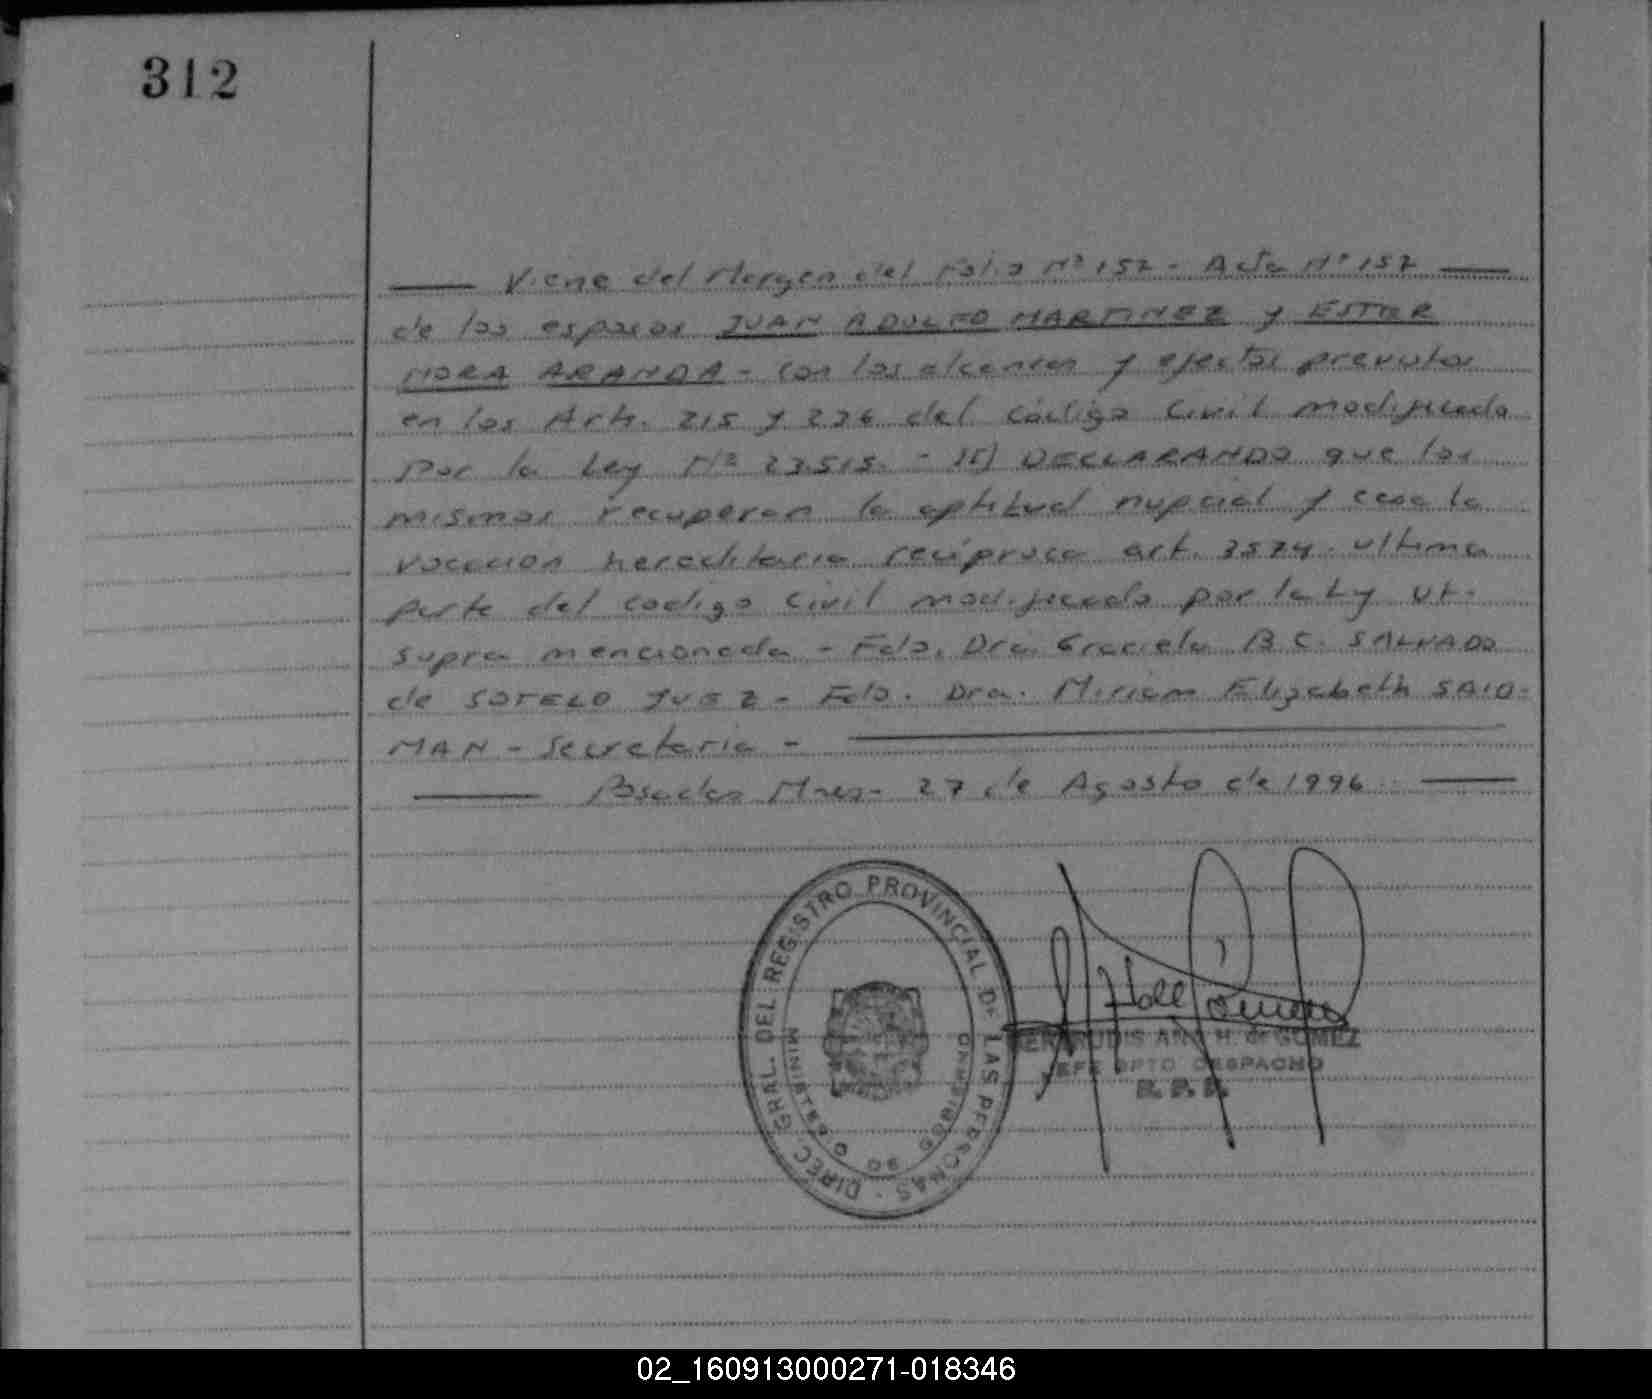 312
Viene del Margen del Folio Nº 157 - Acta Nº 157
de los esposos JUAN ADOLFO MARTINEZ y ESTER
NORA ARANDA - con los alcances y efectos previstos
en los Arts. 215 y 236 del Código Civil modificado
Por la Ley Nº 23.515. - II) DECLARANDO que los
mismos recuperan la aptitud nupcial y cesa la
vocacion hereditaria reciproca art. 3574 ultima
parte del codigo Civil modificado por la Ly ut.
supra mencionada - Fdo. Dra. Graciela B.C. SALVADO
de SOTELO JUEZ - Fdo. Dra. Miriam Elizabeth SAID-
MAN - Secretaria -
Posadas Mnes - 27 de Agosto de 1996
DIREC. GRAL. DEL REGISTRO PROVINCIAL DE LAS PERSONAS
MINISTERIO DE GOBIERNO
GERTRUDIS ANA H. de GOMEZ
JEFE DPTO DESPACHO
R. P. P.
02_160913000271-018346